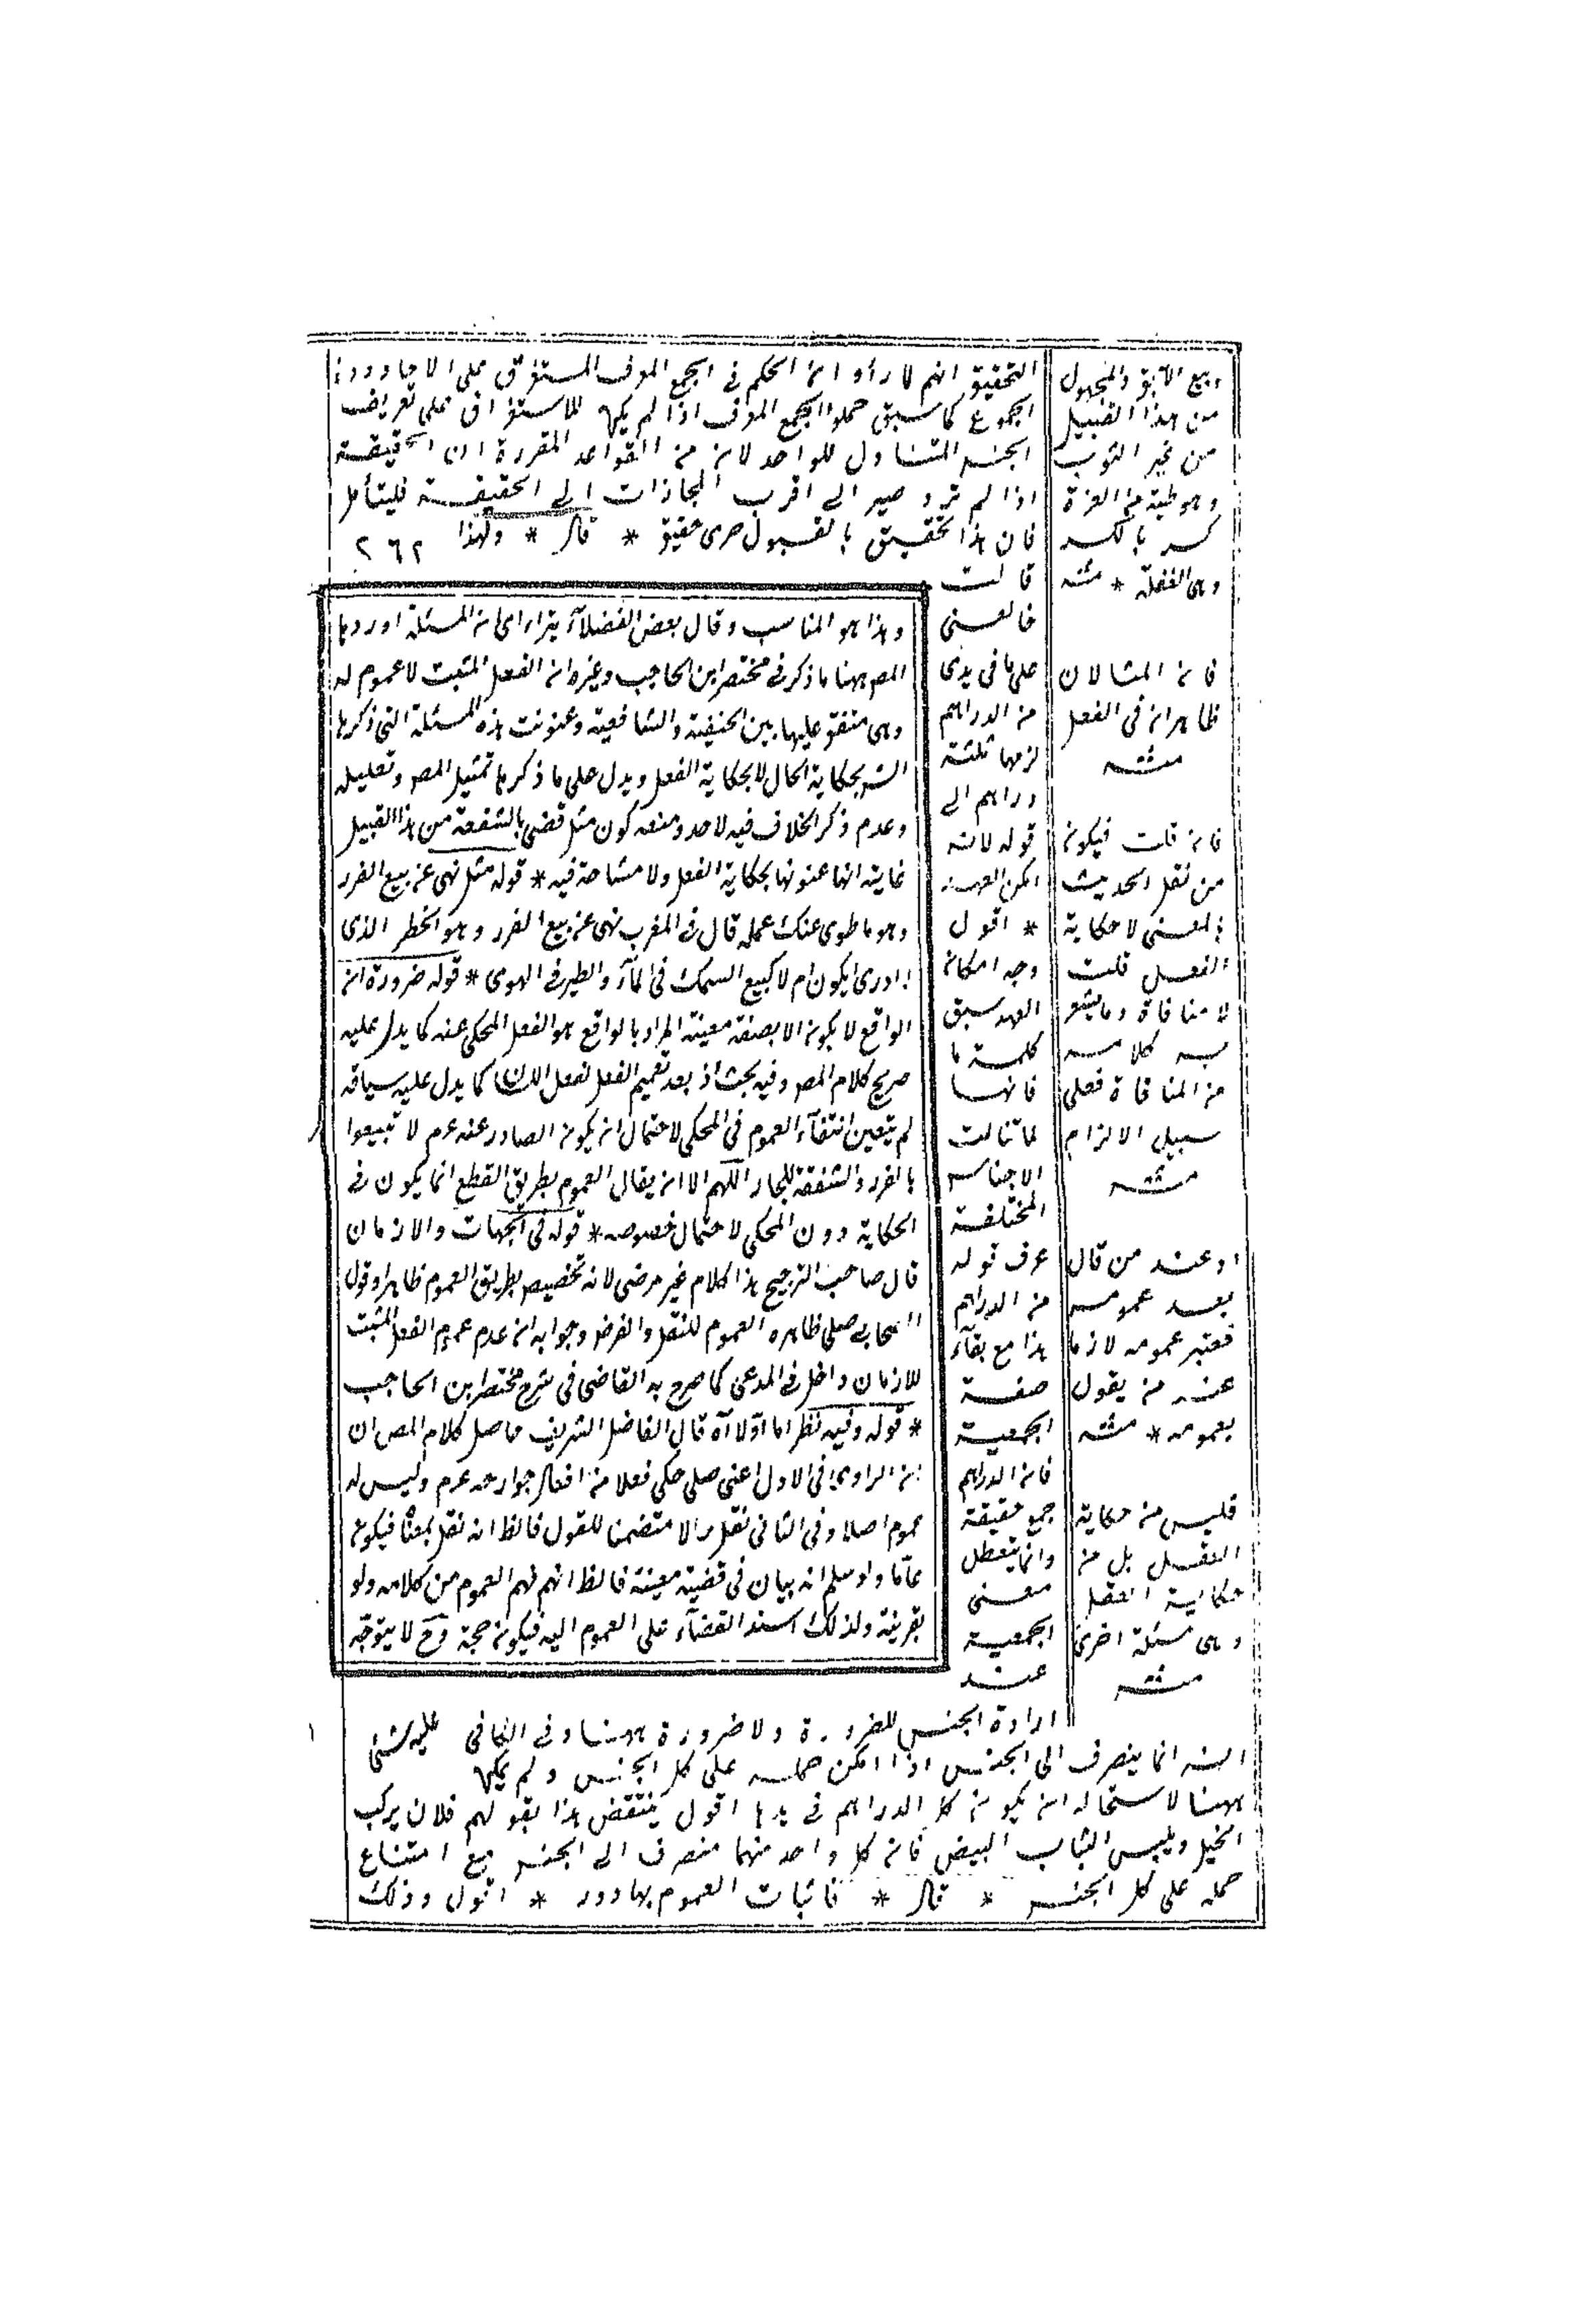 التحقيق انهم لما رأوا ان الحكم في الجمع المعرف المستغرق على الاحاد دون
المجموع كما سبق حملوا الجمع المعرف اذا لم يكن للاستغراق على تعريف
الجنس المتناول للواحد لان من القواعد المقررة ان الحقيقة
اذا لم ترد صير الى اقرب المجازات الى الحقيقة فليتأمل
فان هذا تحقيق بالقبول حرى حقيق * قال * ولهذا ٢٦٢
قالت
خالعنى
على ما فى يدى
من الدراهم
لزمها ثلثة
دراهم الى
قوله لانه
امكن العهد
* اقول
وجه امكان
العهد سبق
كلمة ما
فانها
لما تنالت
الاجناس
المختلفة
عرف قوله
من الدراهم
هذا مع بقآء
صفة
الجمعية
فان الدراهم
جمع حقيقة
وانما يتعطل
معنى
الجمعية
عند
ارادة الجنس للضرورة ولا ضرورة ههنا وفي الكافى
انه انما ينصرف الى الجنس اذا امكن حمله على كل الجنس ولم يكن
ههنا لاستحالة ان يكون كل الدراهم في يدها اقول ينتقض هذا بقولهم فلان يركب
الخيل ويلبس الثياب البيض فان كل واحد منهما منصرف الى الجنس مع امتناع
حمله على كل الجنس * قال * فاثبات العموم بها دور * اقول وذلك
وهذا هو المناسب وقال بعض الفضلآء يترا اى ان المسئلة اوردها
المص ههنا ما ذكر في مختصر ابن الحاجب وغيره ان الفعل المثبت لا عموم له
وهى متفق عليها بين الحنيفة والشافعية وعنونت هذه المسئلة التى ذكرها
الش بحكاية الحال لا بحكاية الفعل ويدل على ما ذكرنا تمثيل المص وتعليله
وعدم ذكر الخلاف فيه لاحد ومنعه كون مثل قضى بالشفعة من هذا القبيل
غايته انها عنونها بحكاية الفعل ولا مشاحة فيه * قوله مثل نهى عن بيع الغرر
وهو ما طوى عنك عمله قال في المغرب نهى عن بيع الغرر وهو الخطر الذى
لا درى ايكون ام لا كبيع السمك فى المآء والطير في الهوى * قوله ضرورة ان
الواقع لا يكون الا بصفة معينة المراد بالواقع هو الفعل المحكى عنه كما يدل عليه
صريح كلام المص وفيه بحث اذ بعد تعميم الفعل لفعل اللسان كما يدل عليه سياقه
لم يتعين انتفآء العموم فى المحكى لاحتمال ان يكون الصادر عنه عرم لا تبيعوا
بالغرر والشفعة للجار اللهم الا ان يقال العموم بطريق القطع انما يكون في
الحكاية دون المحكى لاحتمال خصوصه * قوله فى الجهات والازمان
قال صاحب الترجيح هذا كلام غير مرضى لانه تخصيص بطريق العموم ظاهرا وقول
الصحابى صلى ظاهره العموم للنفل والفرض وجوابه ان عدم عموم الفعل المثبت
للازمان داخل في المدعى كما صرح به القاضى فى شرح مختصر ابن الحاجب
* قوله وفيه نظر اما اولا آه قال الفاضل الشريف حاصل كلام المص ان
ان الراوى فى الاول اعنى صلى حكى فعلا من افعال جوارحه عرم وليس له
عموم اصلا وفى الثانى نقل الا متضمنا للقول فالظ انه نقل بمعنا فيكون
عاما ولو سلم انه بيان فى قضية معينة فالظ انهم فهم العموم من كلامه ولو
بقرينة ولذلك اسند القضآء على العموم اليه فيكون حجة وح لا يتوجه
عليه شئ
وبيع الآبق والمجهول
من هذا القبيل
من غير الثوب
وهو طيه من الغرة
كسر بالكسر
وهى الغفلة * منه
فان المثالان
ظاهران فى الفعل
منه
فان قلت فيكون
من نقل الحديث
بالمعنى لا حكاية
الفعل قلت
لا منافاة وما يشعر
به كلامه
من المنافاة فعلى
سبيل الالزام
منه
او عند من قال
بعد عمومه
فعتبر عمومه لازما
عند من يقول
بعمومه * منه
فليس من حكاية
الفعل بل من
حكاية الفعل
وهى مسئلة اخرى
منه